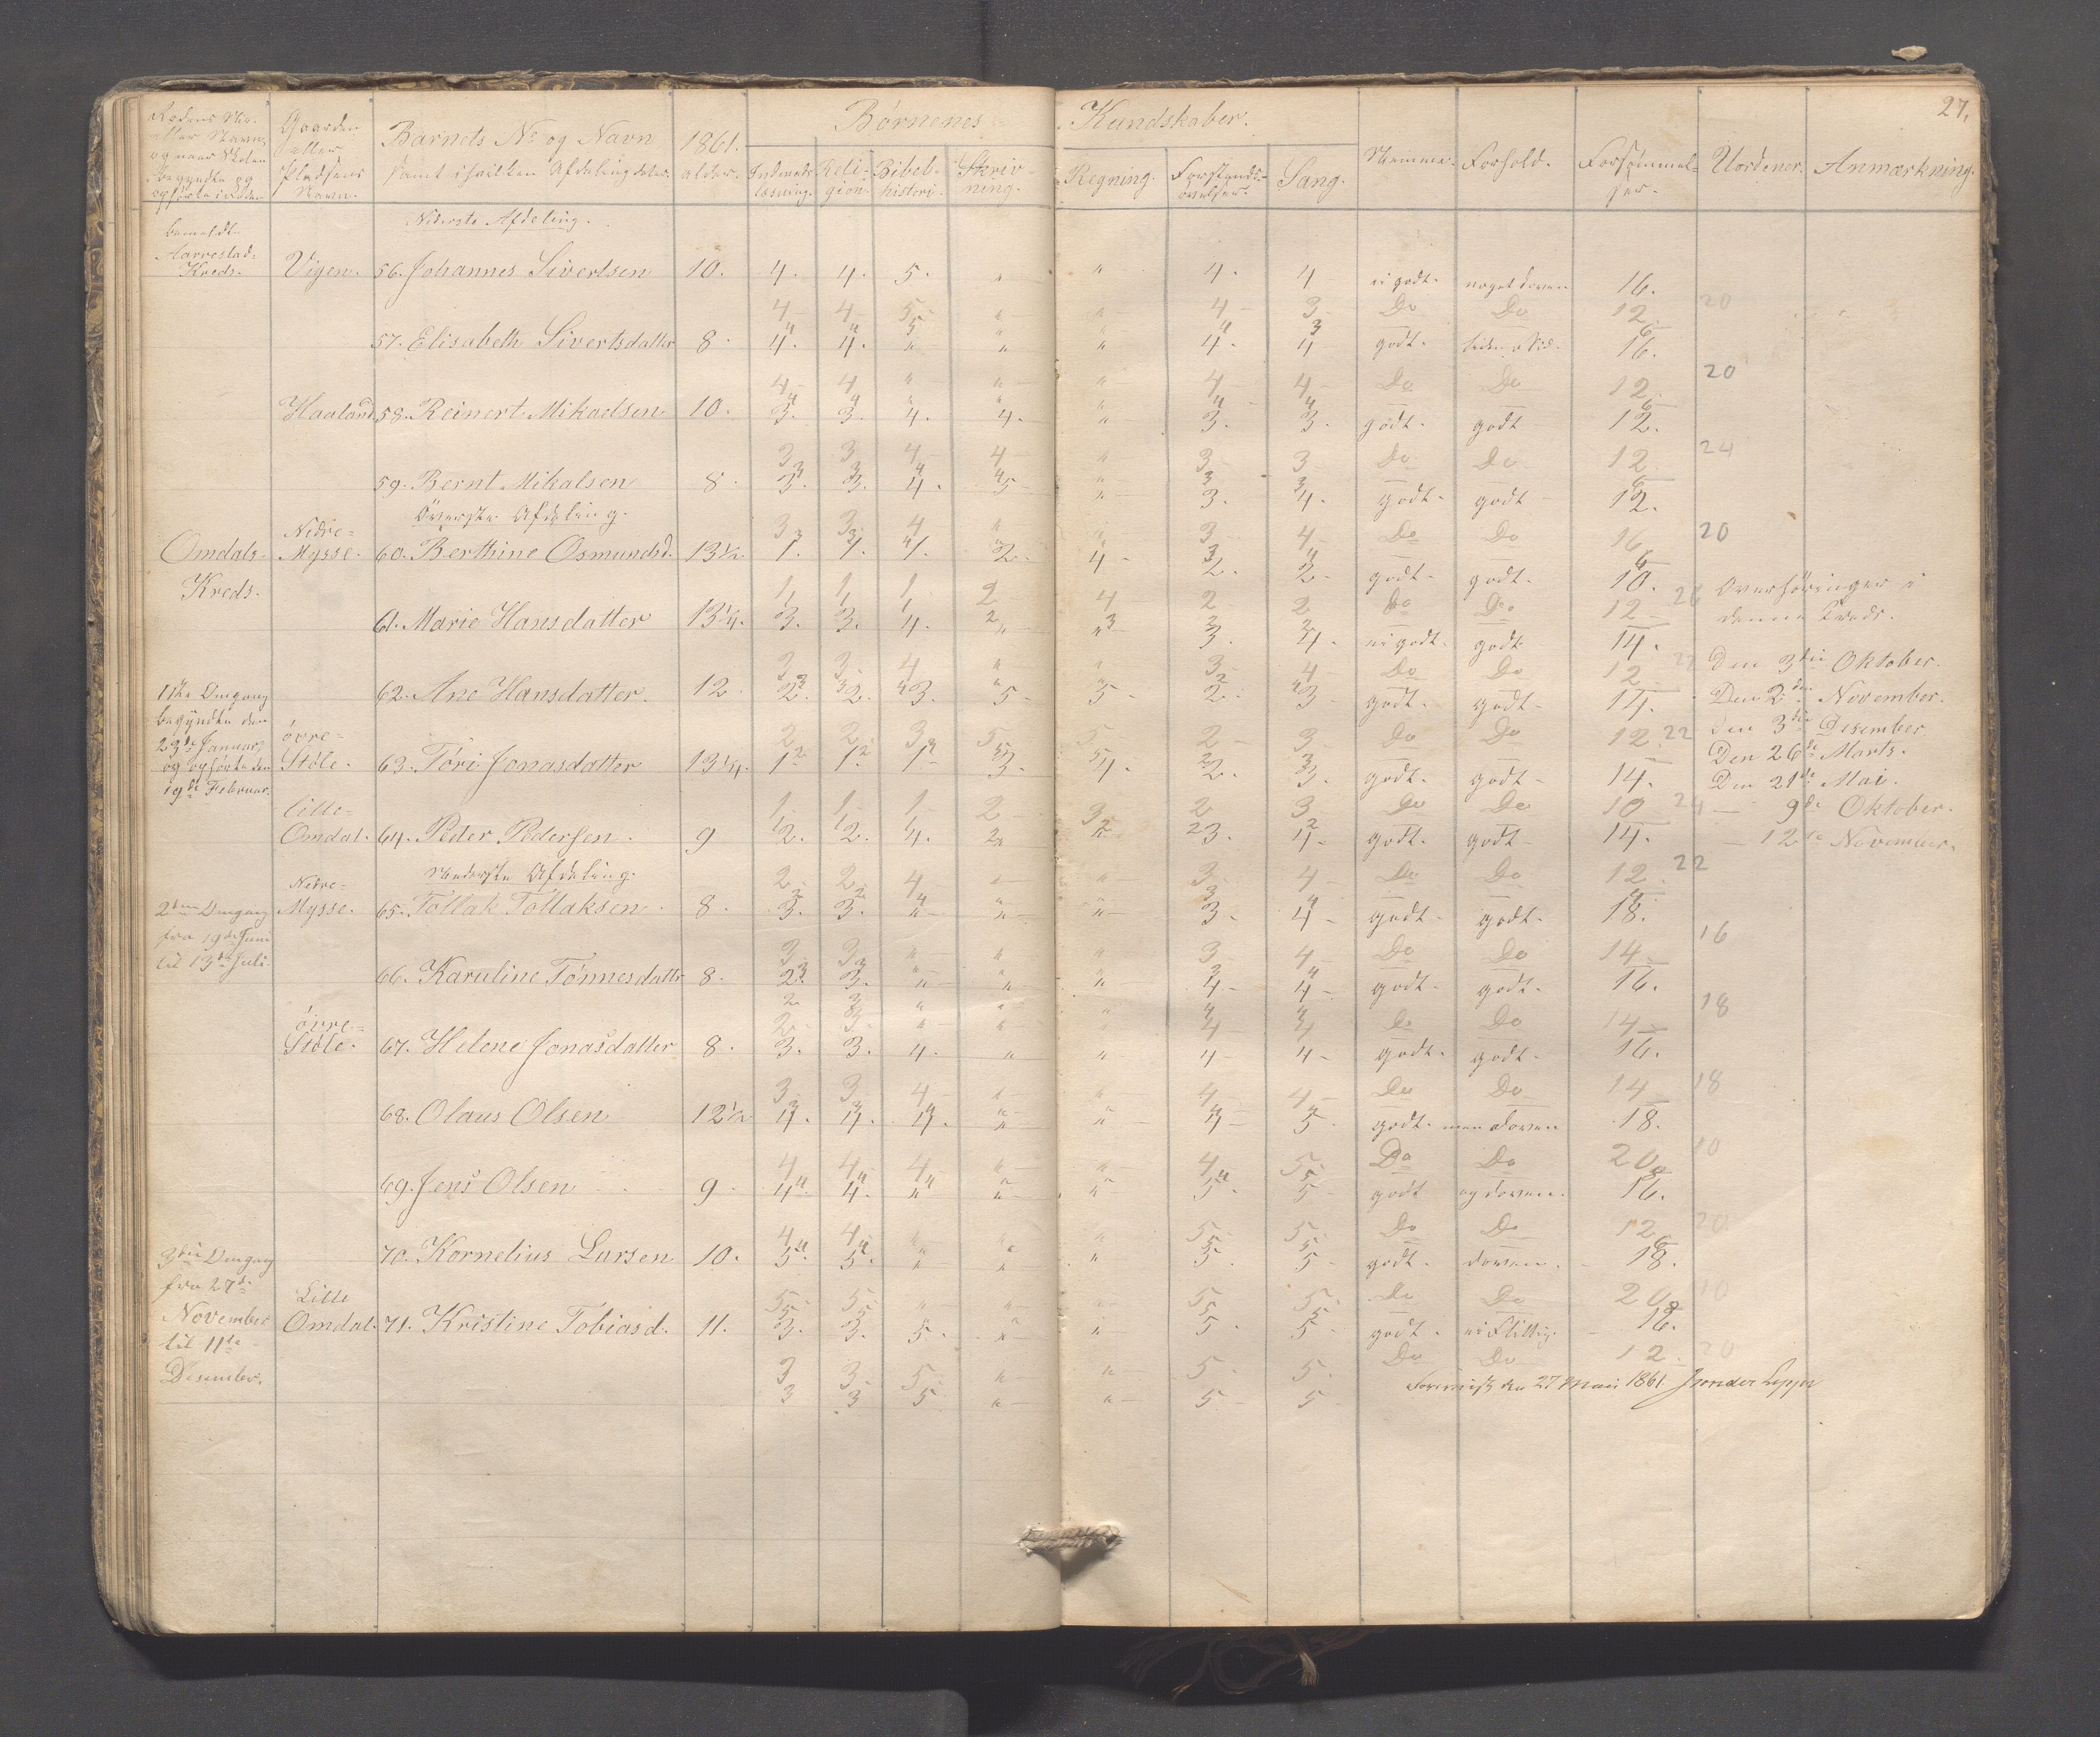 27.
Rodens No. eller Navn, og naar Skolen begyndte og opførte i den
Gaarden eller Pladsens Navn.
Barnets No og Navn samt i hvilken Afdeling
1861. alder.
Børnenes Kundskaber.
Indenads læsning. Religion. Bibelhistori. Skrivning. Regning. Forstandsøvelser. Sang.
Nemme. Forhold. Forsømmelser. Uordener. Anmærkning.
Nederste Afdeling.
bemeldte Aarrestad Kreds.
Vigen. 56. Johannes Sivertsen 10. 4. 4. 5. " " 4. 4 ei godt. noget doven 16.
4 4 5 " " 4 3 Do Do 12 20
57. Elisabeth Sivertsdatter 8. 4. 4. " " " 4. 4 godt. 16.
4 4 " " " 4 4 Do Do 12 20
Haaland 58. Reinert Mikaelsen 10. 3. 3. 4. 4. " 3. 3. godt. godt 12.
3 3 4 4 " 3 3 Do Do 12 24
59. Bernt Mikalsen 8. 3. 3. 4. 5 " 3. 4. godt. godt 12.
Överste Afdeling.
3 3 4 " " 3 4 Do Do 16 20
Omdals Kreds.
Nedre= Mysse. 60. Berthine Osmundsd. 13½ 1. 1. 1. 2. 4 2. 2 godt. godt. 10.
1 1 1 2 4 2 2 Do Do 12 26
Overhöringer i denne Kreds.
61. Marie Hansdatter 13¼. 3. 3. 4. " " 3. 4. ei godt. godt 14.
3 3. 4 " " 3 4 Do Do 12 22
Den 3die Oktober.
1ste Omgang begyndte den 23de Januar, og opförte den 19de Februar.
62. Ane Hansdatter. 12. 2. 2. 3. 5 5 2. 3 godt. godt 14.
Den 2den November.
2 2 3 5 5 2 3 Do Do 12 22
Den 3die Desember.
Den 26de Marts.
övre= Stöle. 63. Töri Jonasdatter 13¼. 1 1. 1 3. 4. 2. 3. godt. godt 14.
Den 21de Mai.
1 1 1 2 3 2 3 Do Do 10 24
— 9de Oktober.
Lille= Omdal. 64. Peder Pedersen. 9 2. 2. 4. " " 3. 4 godt. godt 14.
— 12te November.
Nederste Afdeling.
2 2 4 " " 3 4 Do Do 12 22
2den Omgang fra 19de Juni til 13de Juli.
Nedre= Mysse. 65. Tollak Tollaksen 8. 3. 3. " " " 3 4 godt godt. 18.
3 3 " " " 3 4 Do Do 14 16
66. Karuline Tönnesdattr 8. 2. 3. " " " 4 4 godt. godt. 16.
2 3 " " " 4 4 Do Do 14 18
övre= Stöle. 67. Helene Jonasdatter 8. 3. 3. 4. " " 4 4 godt. godt. 16.
3 3 4 " " 4 4 Do Do 14 18
68. Olaus Olsen 12½ 4. 4. 4. " " 4 5 godt. men doven 18.
4 4 4 " " 4 5 Do Do 20 10
69. Jens Olsen 9. 4. 4. " " " 5. 5 godt og doven. 16.
4 4 " " " 5 5 Do Do 12 20
3die Omgang fra 27de November til 11te Desember.
70. Kornelius Larsen 10. 5. 5. " " " 5. 5 godt. doven. 18.
5 5 " " " 5 5 Do Do 20 10
Lille Omdal. 71. Kristine Tobiasd. 11. 3. 3. 5. " " 5. 5 godt. ei flittig. 16.
3 3 5 " " 5 5. Do Do 12 20
3 3 5 " " 5 5
Forevist den 27 Mai 1861